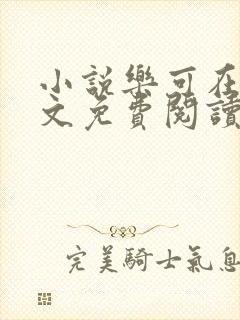 小說樂可在
文免費閱讀
完美騎士氣息